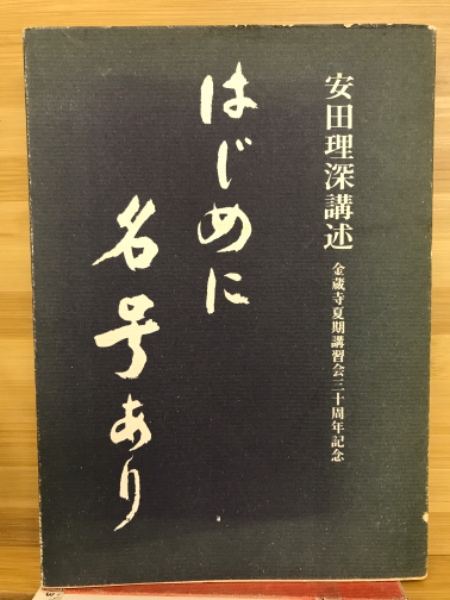 安田理深講述
金蔵寺夏期講習会三十周年記念
はじめに
名号あり